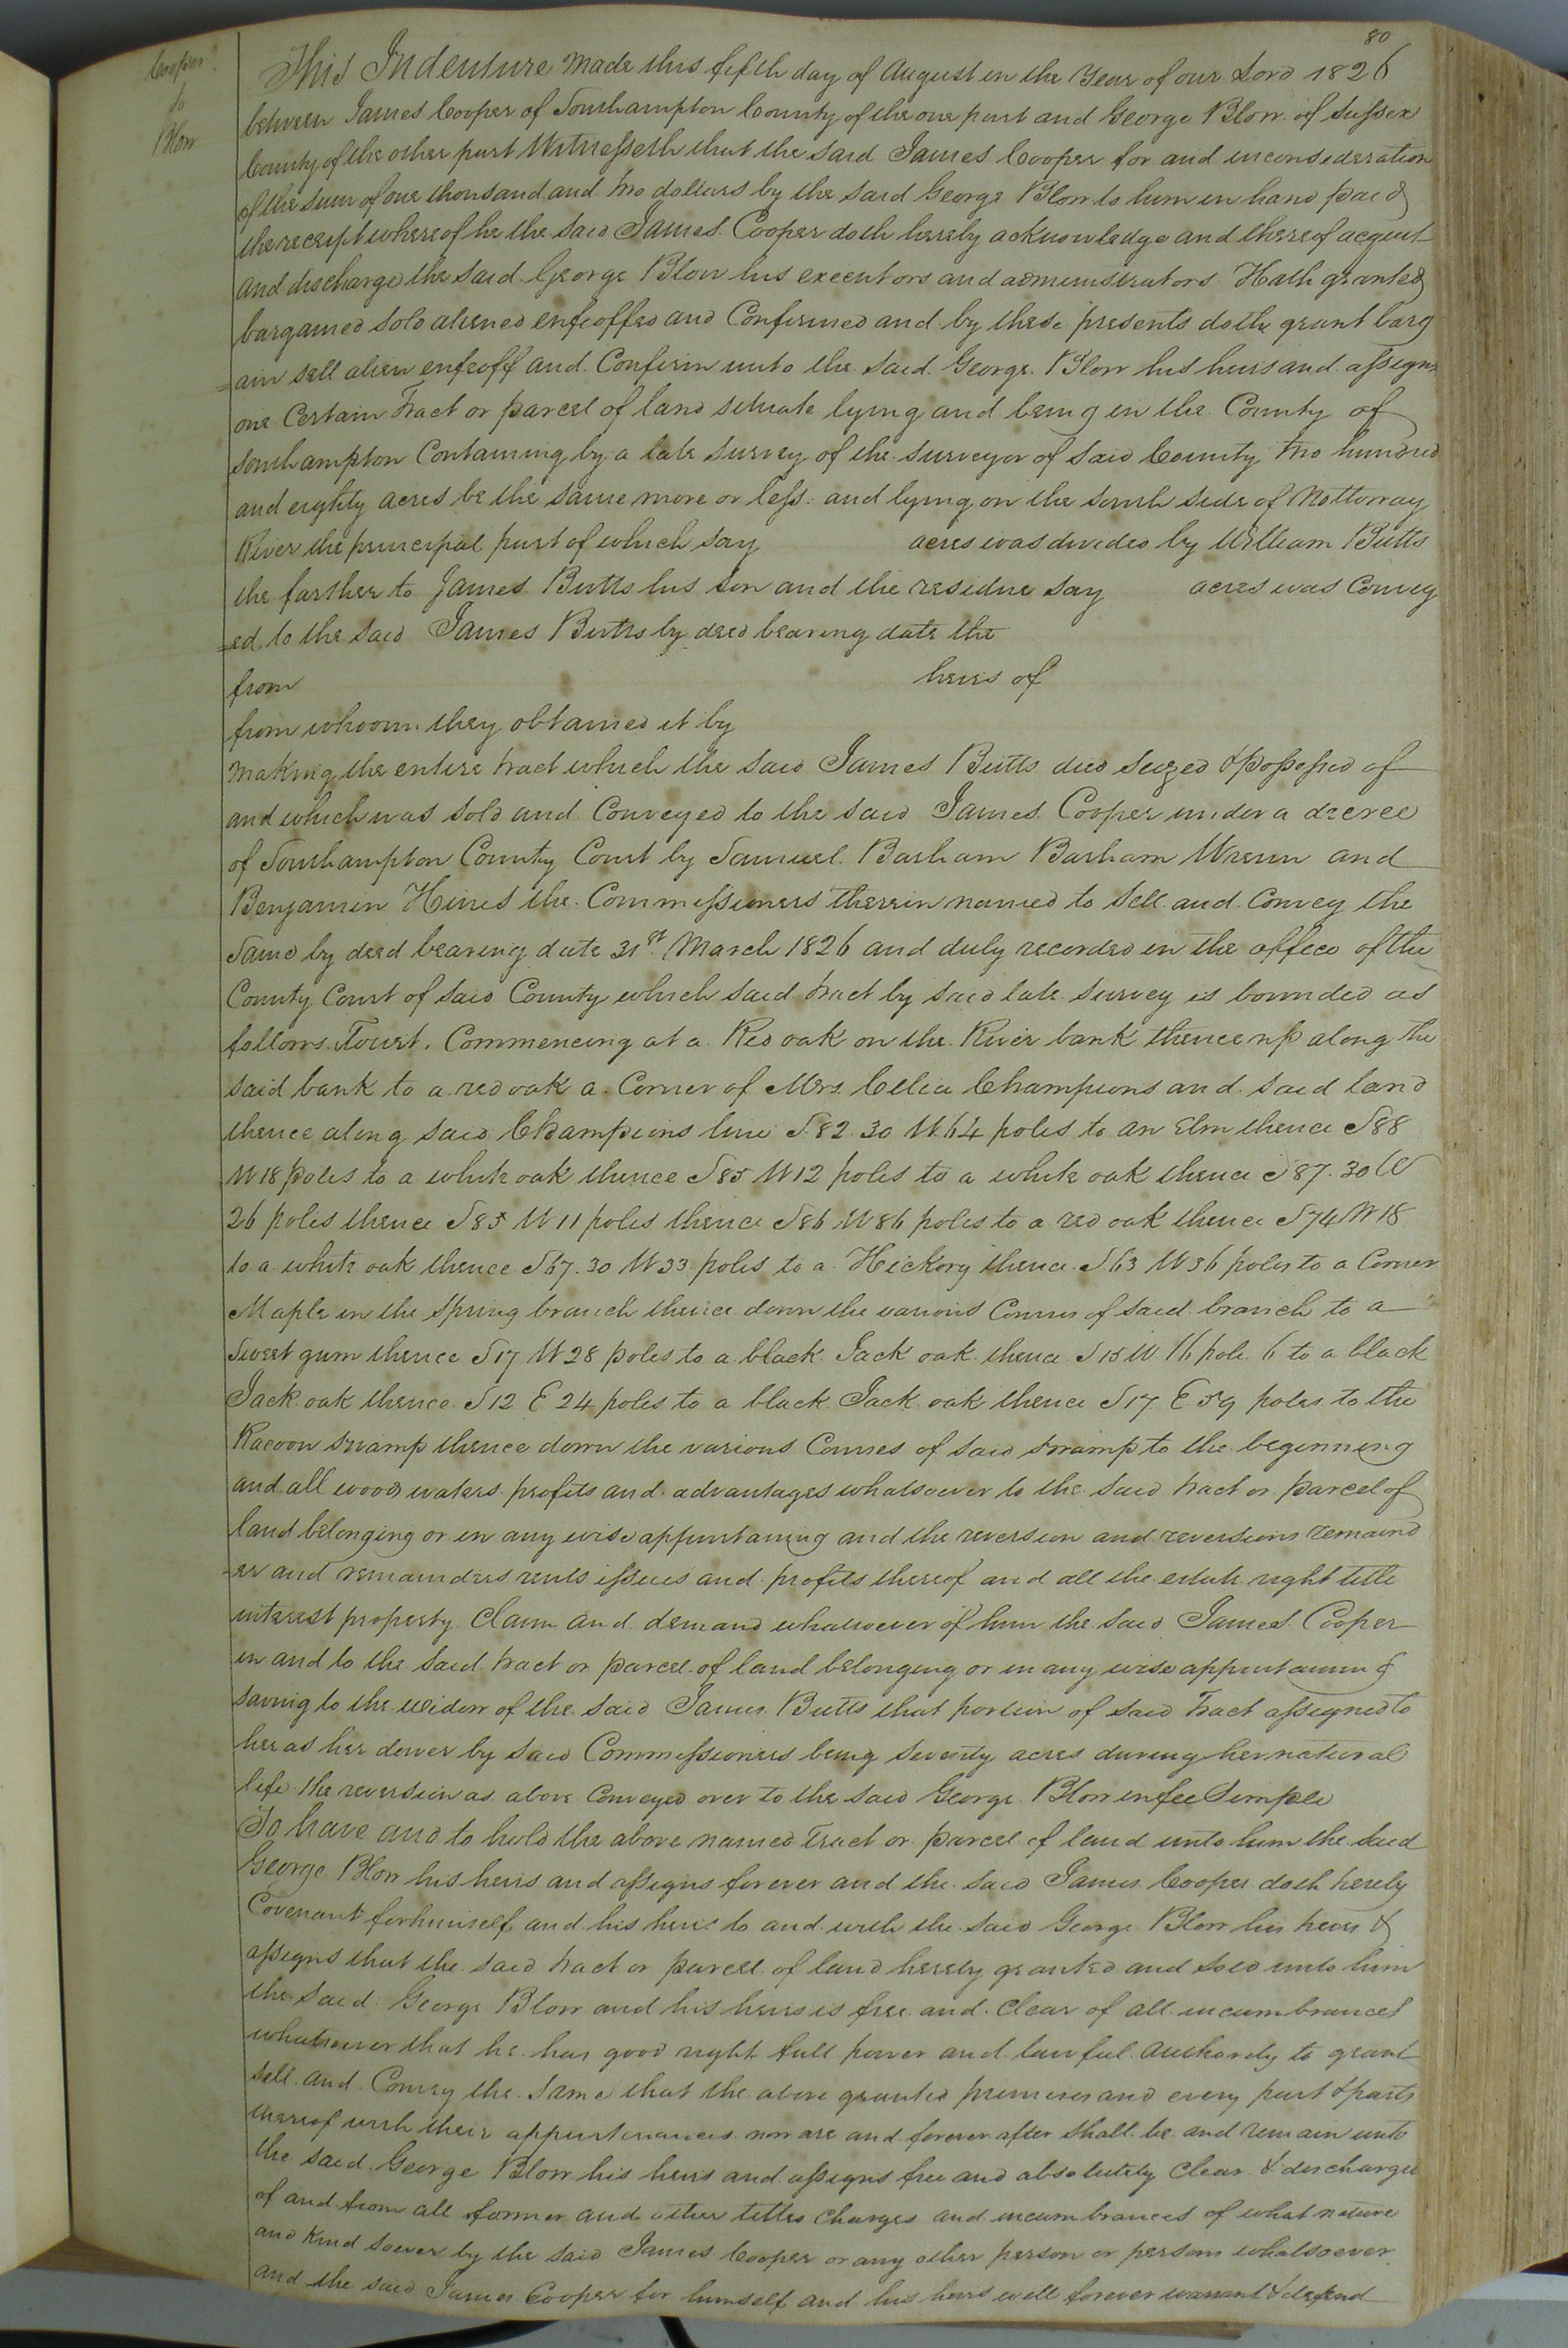 80
Cooper
to
Blow
This Indenture made this fifth day of August in the Year of our Lord 1826
between James Cooper of Southampton County of the one part and George Blow of Sussex
County of the other part Witnesseth that the said James Cooper for and in consideration
of the sum of one thousand and two dollars by the said George Blow to him in hand paid
the receipt whereof he the said James Cooper doth hereby acknowledge and thereof acquit
and discharge the said George Blow his executors and administrators Hath granted
bargained sold aliened enfeoffed and Confirmed and by these presents doth grant barg
=ain sell alien enfeoff and Confirm unto the said George Blow his heirs and assigns
one Certain Tract or parcel of land situate lying and being in the County of
Southampton Containing by a late survey of the surveyor of said County two hundred
and eighty acres be the same more or less and lying on the south side of Nottoway
River the principal part of which say acres was divided by William Butts
the farther to James Butts his son and the residue say acres was Convey
=ed to the said James Butts by deed bearing date the
from heirs of
from whoom they obtained it by
making the entire tract which the said James Butts died seized & possessed of
and which was sold and Conveyed to the said James Cooper under a decree
of Southampton County Court by Samuel Barham Barham Wrenn and
Benjamin Hines the Commissioners therein named to sell and Convey the
same by deed bearing date 31st March 1826 and duly recorded in the office of the
County Court of said County which said tract by said late survey is bounded as
follows Towit. Commencing at a Red oak on the River bank thence up along the
said bank to a red oak a Corner of Mrs. Celia Champions and said land
thence along said Champions line S 82.30 W 64 poles to an Elm thence S 88
W 18 poles to a white oak thence S 85 W 12 poles to a white oak thence S 87.30 W
26 poles thence S 85 W 11 poles thence S 86 W 86 poles to a red oak thence S 74 W 18
to a white oak thence S 67.30 W 33 poles to a Hickory thence S 63 W 36 poles to a Corner
Maple in the Spring branch thence down the various Courses of said branch to a
Sweet gum thence S 17 W 28 poles to a black Jack oak thence S 15 W 16 pole 6 to a black
Jack oak thence S 12 E 24 poles to a black Jack oak thence S 17 E 59 poles to the
Racoon swamp thence down the various Courses of said swamp to the beginning
and all woods waters profits and advantages whatsoever to the said tract or parcel of
land belonging or in any wise appurtaining and the reversion and reversions remaind
=er and remainders rents issues and profits thereof and all the estate right title
interest property claim and demand whatsoever of him the said James Cooper
in and to the said tract or parcel of land belonging or in any wise appurtaining
saving to the widow of the said James Butts that portion of said tract assigned to
her as her dower by said Commissioners being seventy acres during her natural
life the reversion as above Conveyed over to the said George Blow in fee Simple
To have and to hold the above named Tract or parcel of land unto him the said
George Blow his heirs and assigns forever and the said James Cooper doth hereby
Covenant for himself and his heirs to and with the said George Blow his heirs &
assigns that the said tract or parcel of land hereby granted and sold unto him
the said George Blow and his heirs is free and clear of all incumbrances
whatsoever that he has good right full power and lawful authority to grant
sell and Convey the same that the above granted premises and every part & parts
thereof with their appurtenances now are and forever after shall be and remain unto
the said George Blow his heirs and assigns free and absolutely Clear & discharged
of and from all former and other titles charges and incumbrances of what nature
and kind soever by the said James Cooper or any other person or persons whatsoever
and the said James Cooper for himself and his heirs will forever warrant & defend